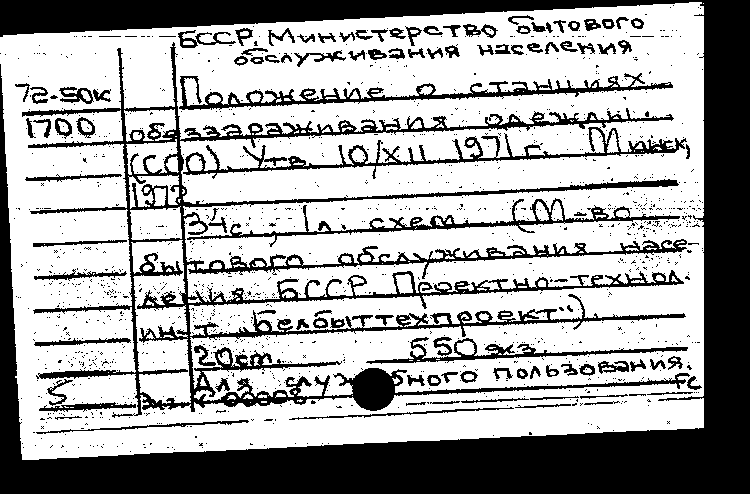 БССР. Министерство бытового
обслуживания населения
72-50к Положение о станциях
1700 обеззараживания одежды.
(СОО). Утв. 10/XII 1971 г. Минск,
1972.
34с.; 1 л. схем. (М-во
бытового обслуживания насе-
ления БССР. Проектно-технол.
ин-т „Белбыттехпроект").
20см. 550 экз.
Для служебного пользования.
5 Экз. № 00008. FC